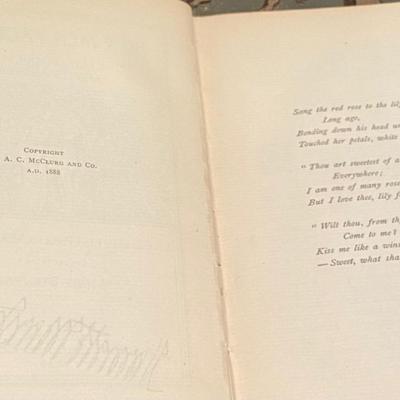 COPYRIGHT
A. C. MCCLURG AND CO.
A.D. 1888
Sang the red rose to the lily
Long ago,
Bending down his head
Touched her petals, white
"Thou art sweetest of
Everywhere;
I am one of many
But I love thee, lily
"Wilt thou, from
Come to me?
Kiss me like a
—Sweet, what